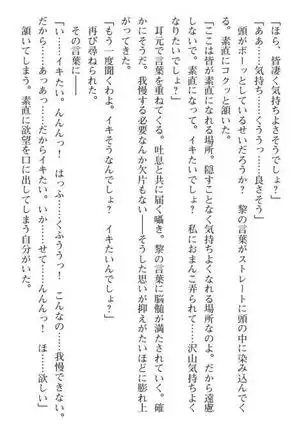 「ほら、皆凄く気持ちよさそうでしょ？」
「ああ……気持ち……くううっ……良さそう」
頭がボーッとしているせいだろうか？　黎の言葉がストレートに頭の中に染み込んでくる。素直にコクッと頷いた。
「ここは皆が素直になれる場所。隠すことなく気持ちよくなれる場所なのよ。だから遠慮しないで。素直になって。イキたいんでしょ？　私におまんこ弄られて……沢山気持ちよくなりたいでしょ？」
耳元で言葉を重ねてくる。吐息と共に届く囁き。黎の言葉に脳髄が満たされていく。確かにそうだ。我慢する必要なんか欠片もない――そうした思いが抑えがたいほどに膨れ上がってきた。
「もう一度聞くわよ。イキそうなんでしょ？　イキたいんでしょ？」
再び尋ねられた。
その言葉に――
「い……イキたい。んんんっ！　はっふ……くふううっ！　こんなの……我慢できない。だから……あっあっ……だからイキたい。いか……せて……んんんっ！　ほ……欲しい」
頷いてしまう。素直に欲望を口に出してしまう自分がいた。